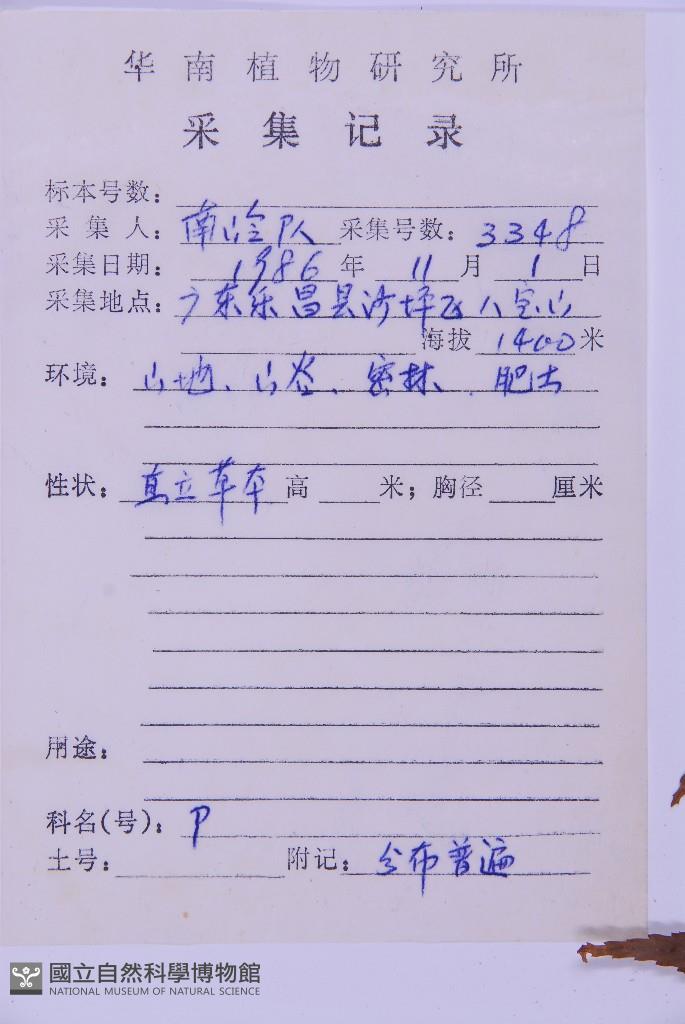 华南植物研究所
采集记录
标本号数：
采集人：南岭队 采集号数：3348
采集日期：1986年11月1日
采集地点：广东乐昌县沙坪区八宝山
海拔1400米
环境：山地、山谷、密林、肥土
性状：直立草本高 米；胸径 厘米
用途：
科名(号)：P
土号： 附记：分布普遍
國立自然科學博物館
NATIONAL MUSEUM OF NATURAL SCIENCE